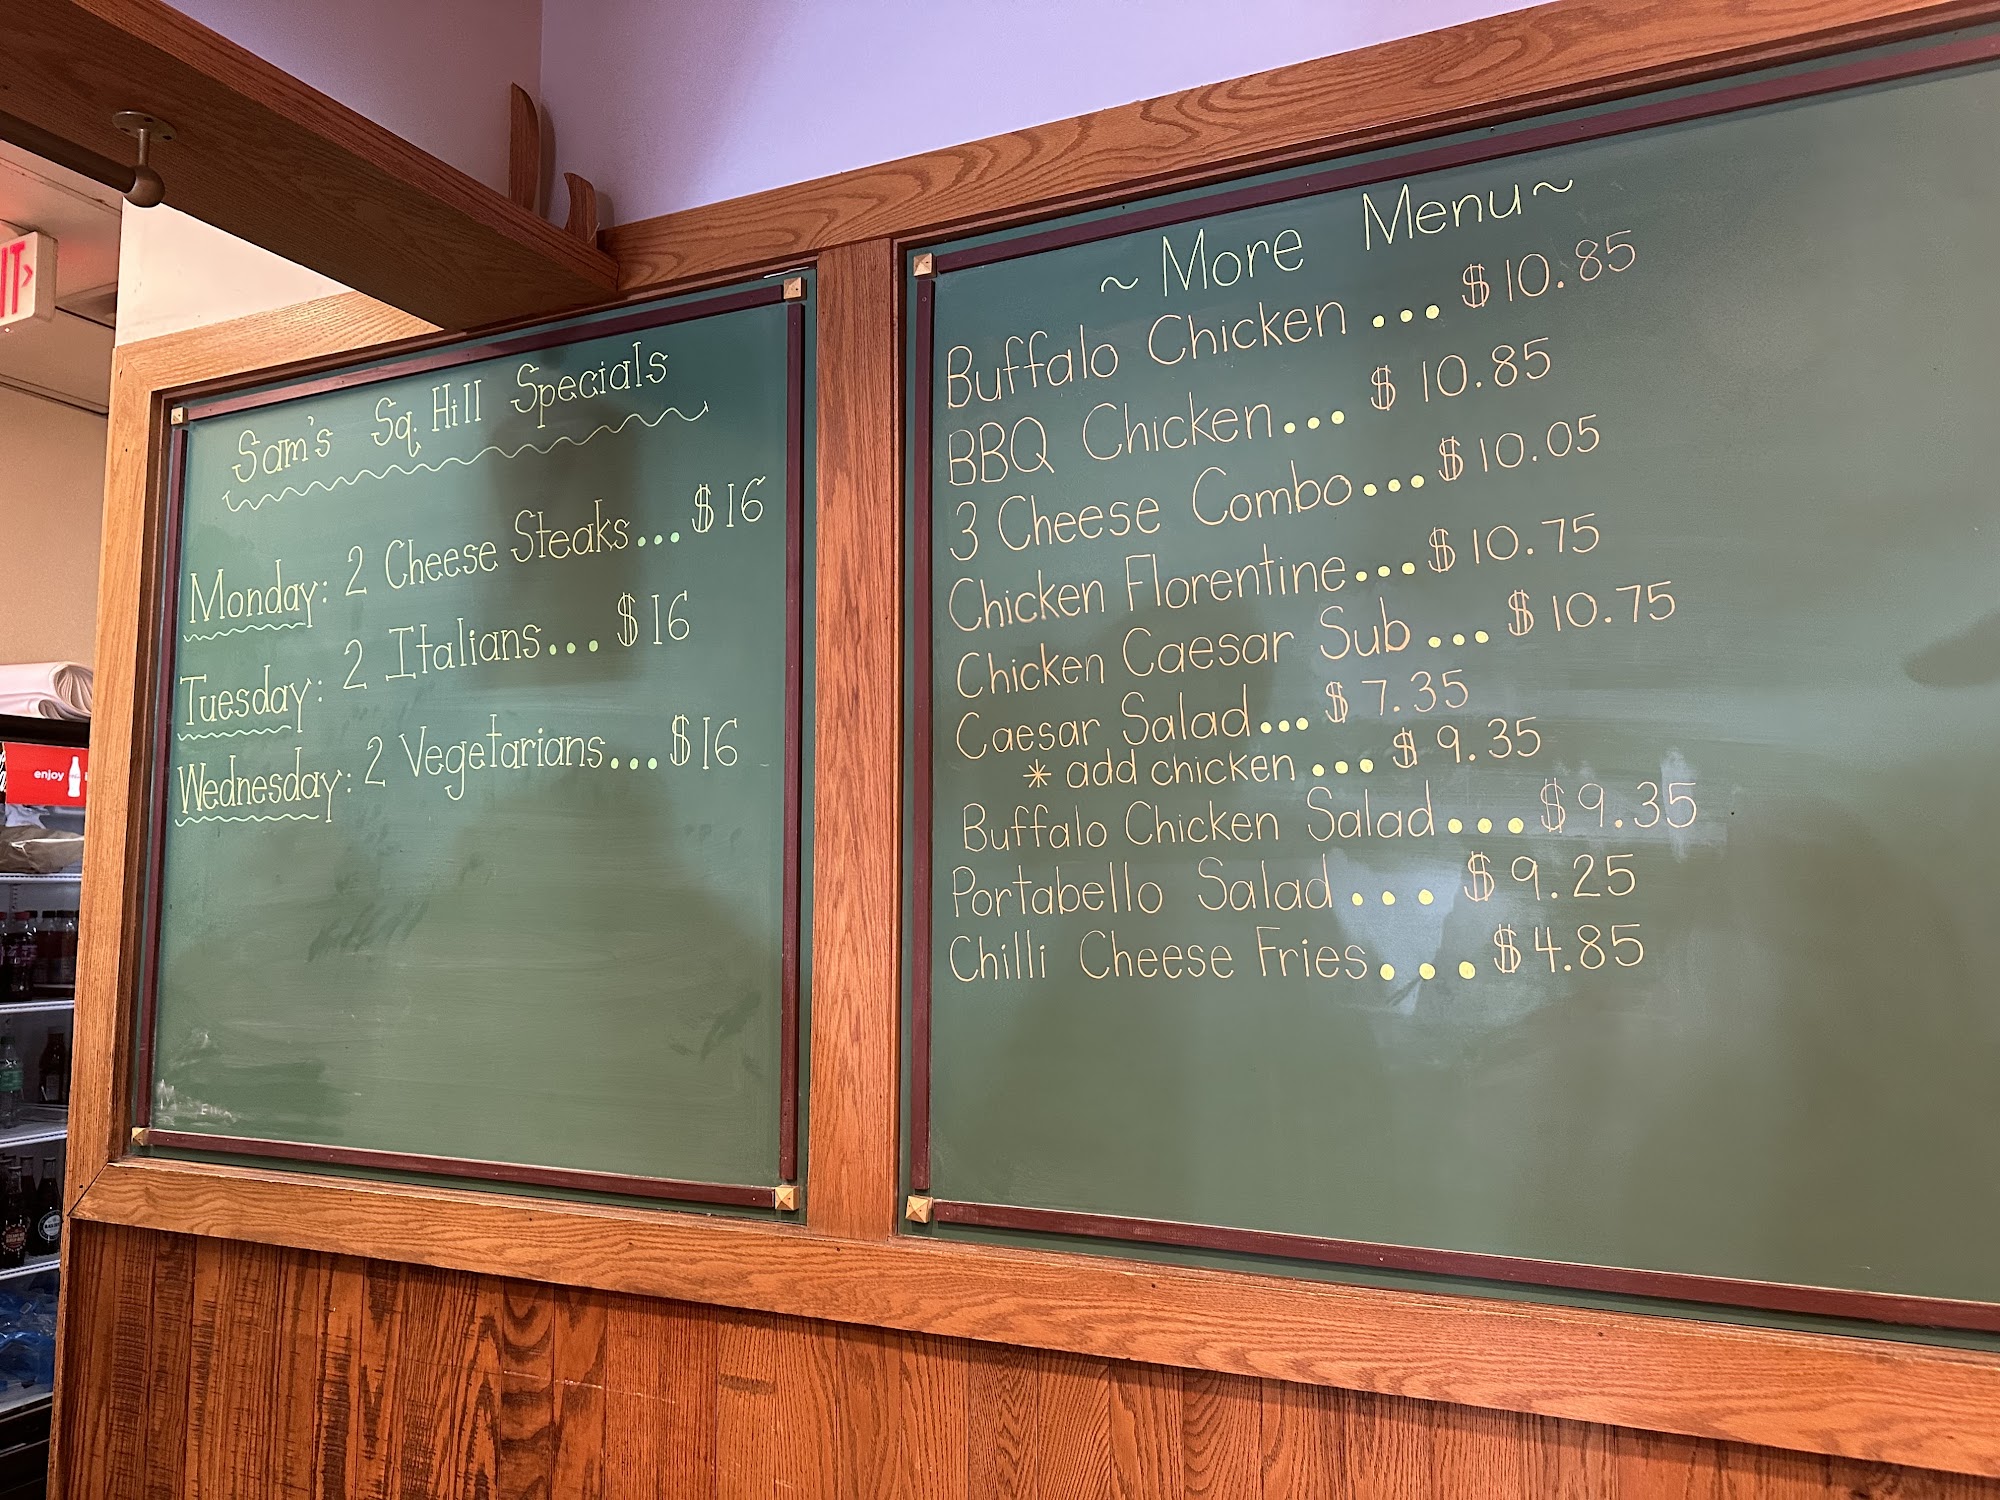 IT
enjoy
Sam's Sq. Hill Specials
Monday: 2 Cheese Steaks... $16
Tuesday: 2 Italians... $16
Wednesday: 2 Vegetarians... $16
~ More Menu ~
Buffalo Chicken ... $10.85
BBQ Chicken... $10.85
3 Cheese Combo... $10.05
Chicken Florentine... $10.75
Chicken Caesar Sub... $10.75
Caesar Salad... $7.35
* add chicken ... $9.35
Buffalo Chicken Salad... $9.35
Portabello Salad... $9.25
Chilli Cheese Fries... $4.85